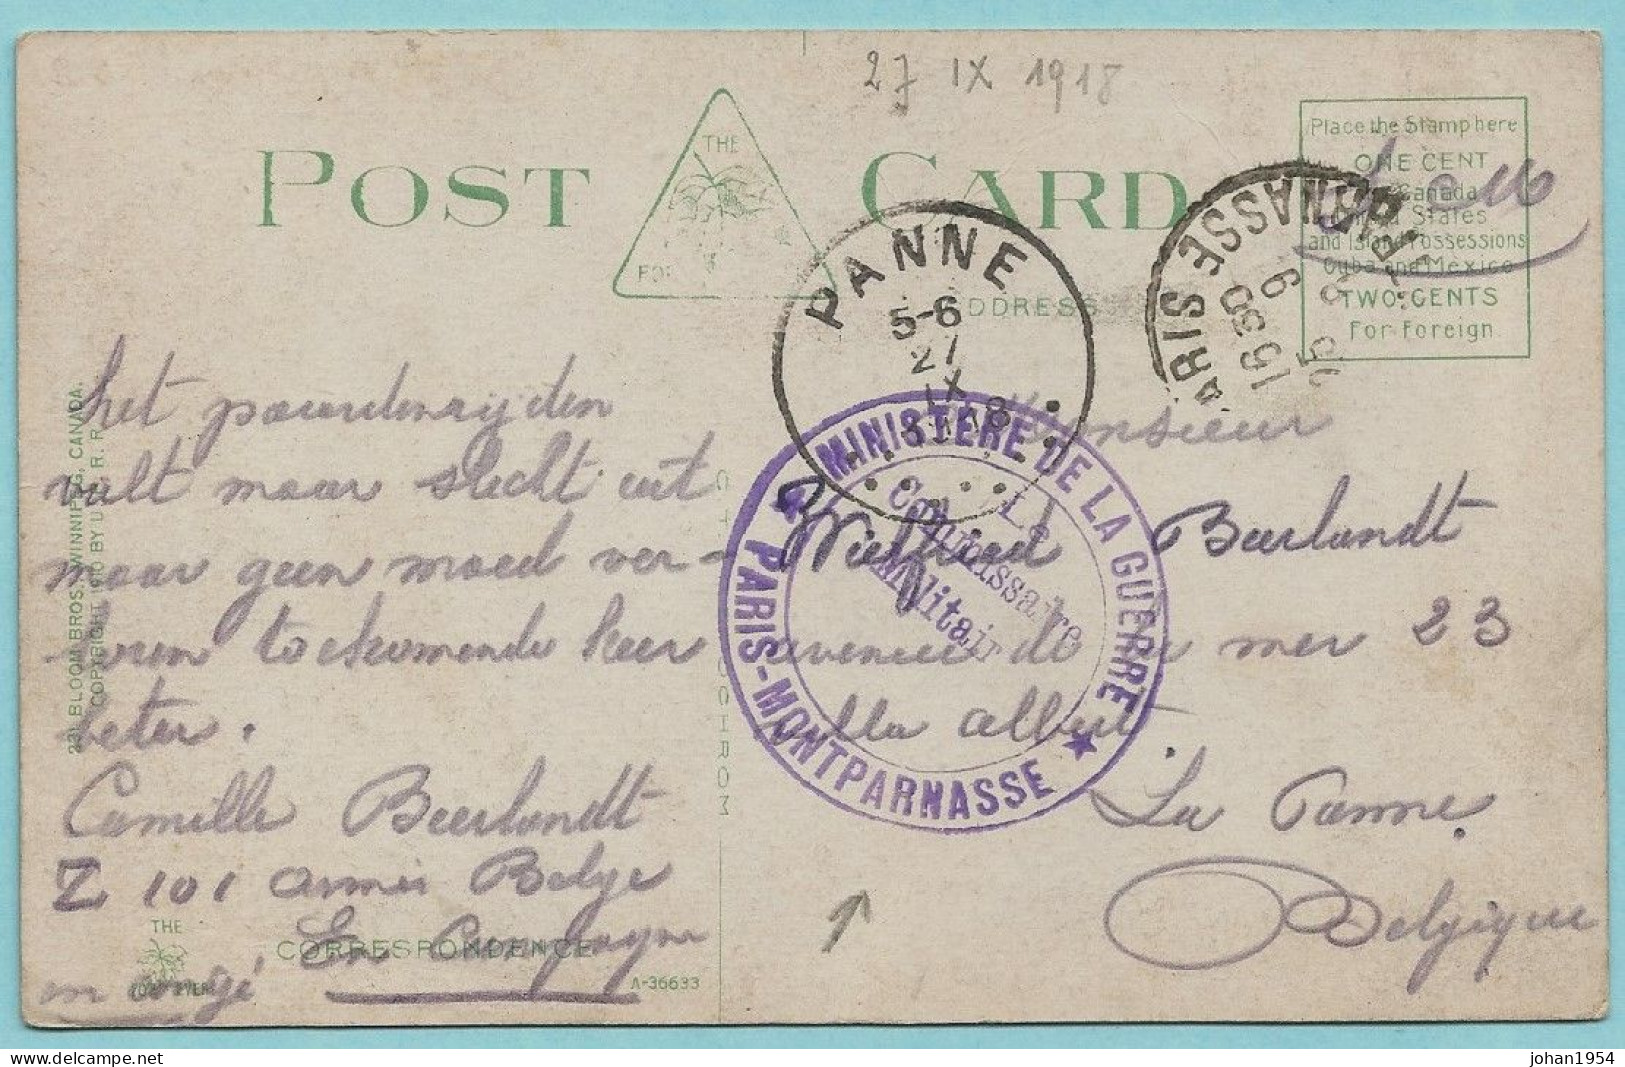 27 IX 1918
POST CARD
THE
FOR
ADDRESS
Place the Stamp here
ONE CENT
Canada
United States
and Island Possessions
Cuba and Mexico
TWO CENTS
For Foreign
PANNE
5-6
27
IX
PARIS
NASSE
MINISTÈRE DE LA GUERRE
PARIS-MONTPARNASSE
Le
Commissaire
Militaire
het paarderijden
valt maar slecht uit
maar geen moed ver-
loren tockomende keer
beter.
Camille Beerlandt
Z 101 armée Belge
En Campagne
en congé
Monsieur
Wilfried Beerlandt
avenue de la mer 23
villa albert
La Panne.
Belgique
231 BLOOM BROS. WINNIPEG, CANADA.
COPYRIGHT 1910 BY U. S. C. R. R.
OCHROM
THE
CORRESPONDENCE
A-36633
johan1954